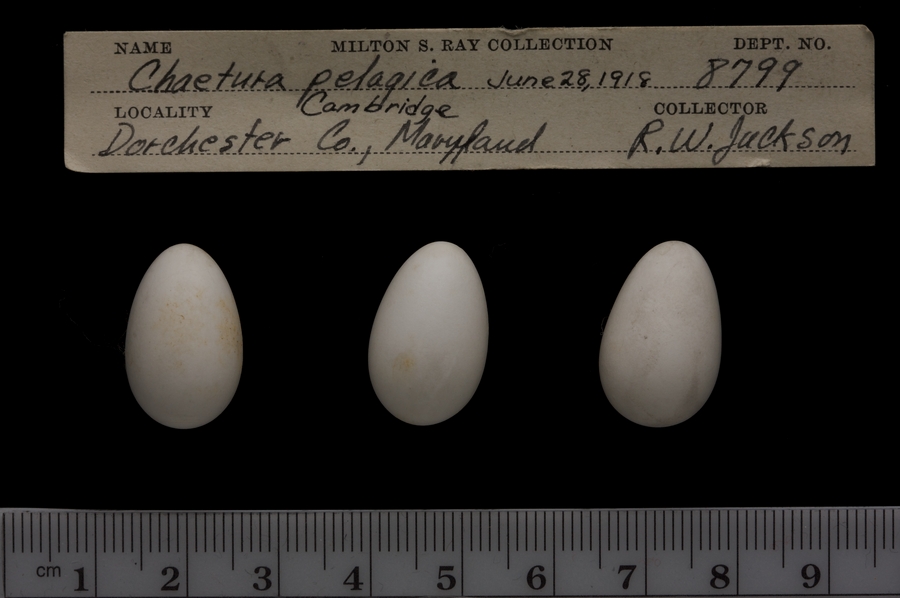 NAME MILTON S. RAY COLLECTION DEPT. NO.
Chaetura pelagica June 28, 1918 8799
LOCALITY Cambridge COLLECTOR
Dorchester Co., Maryland R. W. Jackson
cm 1 2 3 4 5 6 7 8 9